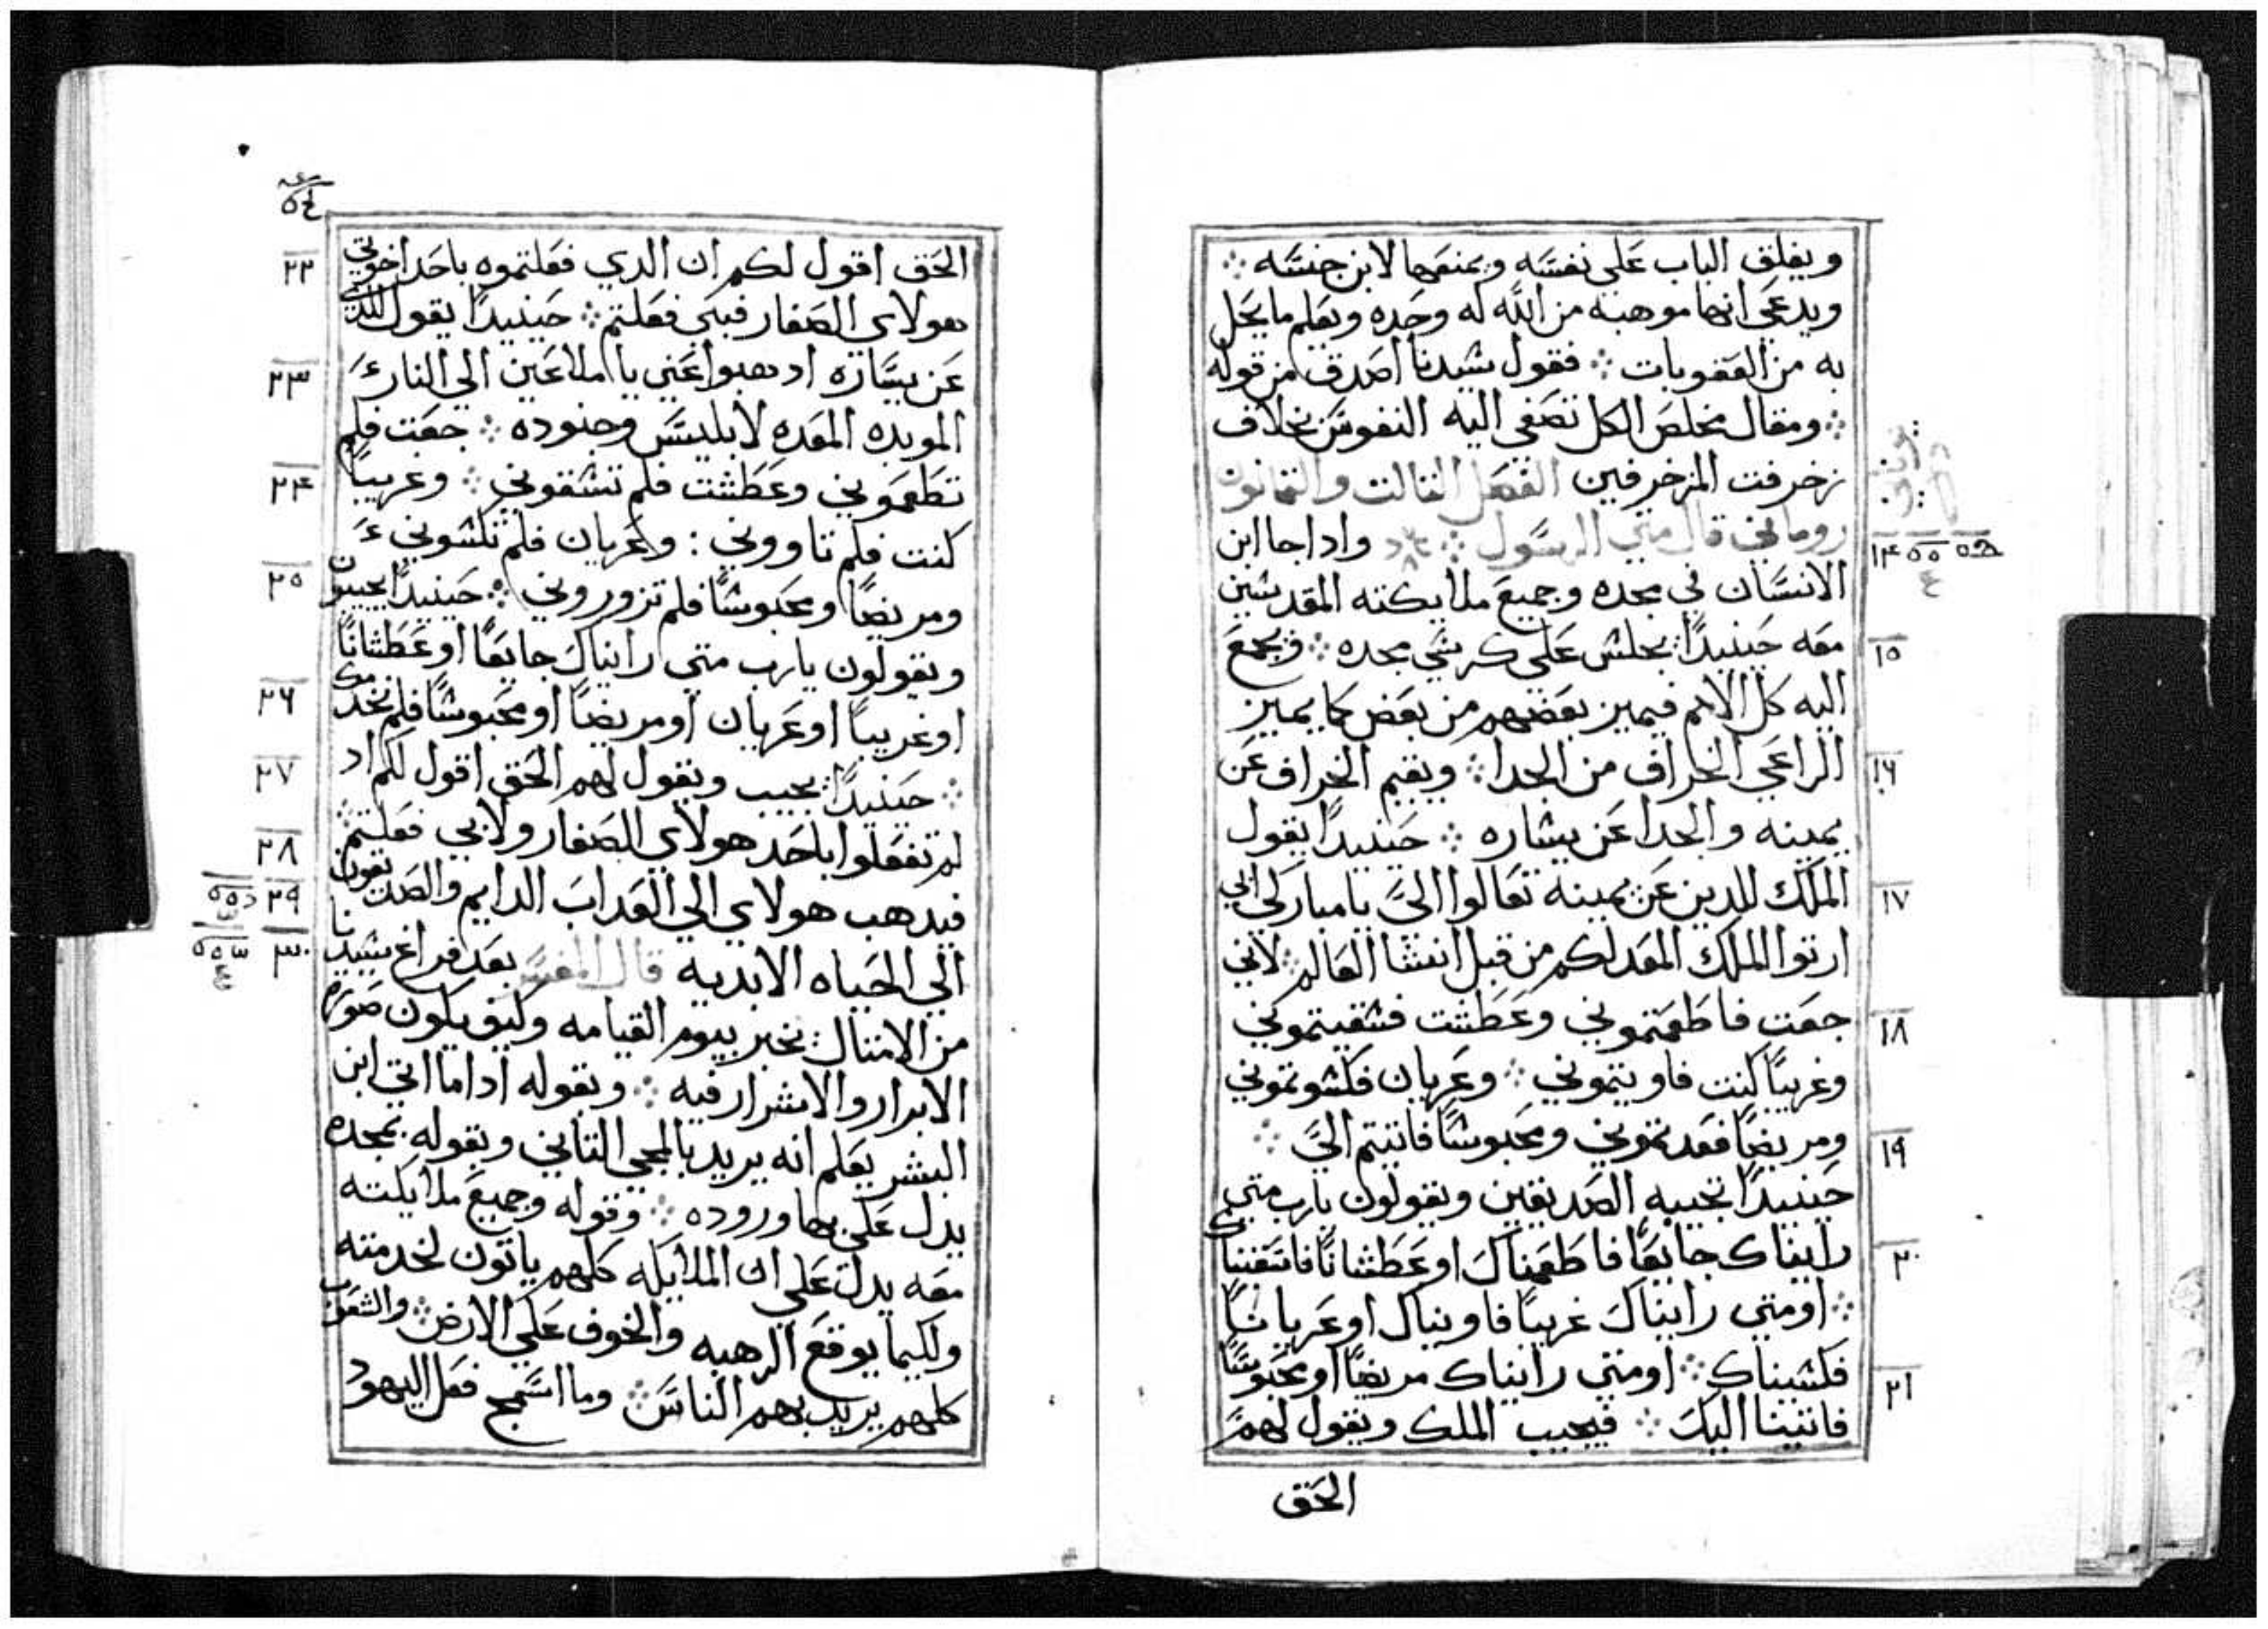 ويغلق الباب على نفسه ويمنعها لابن جنسه
ويدعي انها موهبه من الله له وحده ويعلم ما يحل
به من العقوبات فقول سيدنا اصدق من قوله
ومقال مخلص الكل تصغي اليه النفوس بخلاف
زخرفت المزخرفين الفصل الثالت والتمانون
روماني قال متي الرسول واداجا ابن
الانسان في مجده وجميع ملايكته المقدسين
١٤
معه حينيدًا يجلس على كرسي مجده وتجمع
١٥
اليه كل الامم فيميز بعضهم من بعض كما يميز
الراعي الخراف من الجدا ويقيم الخراف عن
١٦
يمينه والجدا عن يساره حينيدًا يقول
الملك للدين عن يمينه تعالوا الىَّ يا مباركي ابي
١٧
ارتوا الملك المعد لكم من قبل انشا العالم لاني
جعت فاطعمتموني وعطشت فسقيتموني
١٨
وغريبًا كنت فاويتموني وعريان فكسوتموني
ومريضًا فعدتموني ومحبوسًا فاتيتم اليَّ
١٩
حينيدًا تجيبه الصديقين ويقولون يارب متي
رايناك جايعًا فاطعمناك او عطشانًا فاسقيناك
٢٠
او متي رايناك غريبًا فاويناك او عريانًا
فكسيناك او متي رايناك مريضًا او محبوسًا
٢١
فاتينا اليك فيجيب الملك ويقول لهم
الحق
٥٤
الحق اقول لكم ان الدي فعلتموه باحد اخوتي
٢٢
هولاي الصغار فبي فعلتم حينيدًا يقول للدين
عن يساره ادهبوا عني يا ملاعين الي النار
٢٣
المويده المعده لابليس وجنوده جعت فلم
تطعموني وعطشت فلم تسقوني وغريبًا
٢٤
كنت فلم تاووني وعريان فلم تكسوني
ومريضًا ومحبوسًا فلم تزوروني حينيدًا يجيبون
٢٥
ويقولون يارب متي رايناك جايعًا او عطشانًا
او غريبًا او عريان او مريضًا او محبوسًا فلم نخدمك
٢٦
حينيدًا يجيب ويقول لهم الحق اقول لكم اد
٢٧
لم تفعلوا باحد هولاي الصغار ولا بي فعلتم
٢٨
فيدهب هولاي الي العداب الدايم والصديقون
٢٩
الي الحياه الابديه قال المفسر بعد فراغ سيدنا
٣٠
من الامتال يخبر بيوم القيامه وكيف يكون صورة
الابرار والاشرار فيه وبقوله ادا ما اتي ابن
البشر يعلم انه يريد بالمجي التاني وبقوله بمجده
يدل على بها وروده وقوله وجميع ملايكته
معه يدل علي ان الملايكه كلهم ياتون لخدمته
ولكيما يوقع الرهبه والخوف على الارض والشعوب
كلهم يريد بهم الناس وما اسمج فعل اليهود